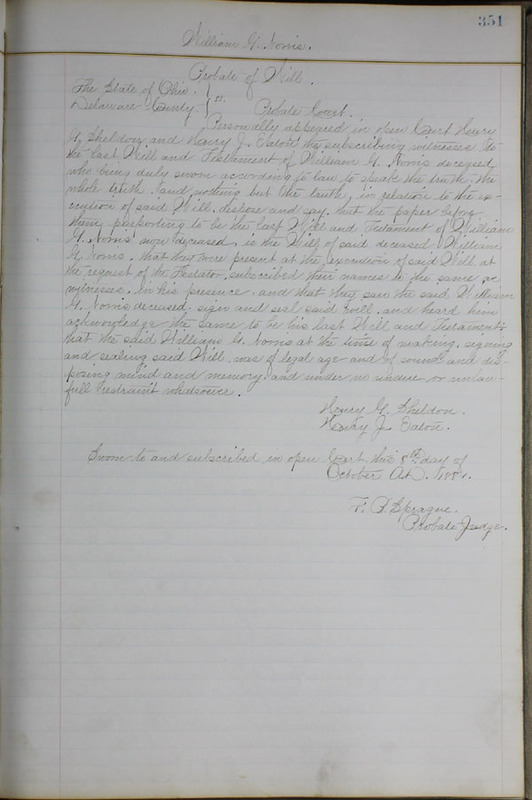 351
William G. Norris.
Probate of Will.
The State of Ohio.
Delaware County. } ss. Probate Court.
Personally appeared in open Court Henry
G. Sheldon and Henry J. Eaton the subscribing witnesses to
the last Will and Testament of William G. Norris deceased,
who being duly sworn according to law to speak the truth the
whole truth and nothing but the truth, in relation to the ex-
ecution of said Will, depose and say, that the paper before
them purporting to be the last Will and Testament of William
G. Norris now deceased, is the Will of said deceased William
G. Norris. that they were present at the execution of said Will at
the request of the Testator subscribed their names to the same as
witnesses in his presence, and that they saw the said William
G. Norris deceased sign and seal said will, and heard him
acknowledge the same to be his last Will and Testament,
that the said William G. Norris at the time of making, signing
and sealing said Will, was of legal age and of sound and dis-
posing mind and memory and under no undue or unlaw-
full restraint whatsoever.
Henry G. Sheldon.
Henry J. Eaton.
Sworn to and subscribed in open Court this 8th day of
October A.D.
F. P. Sprague.
Probate Judge.